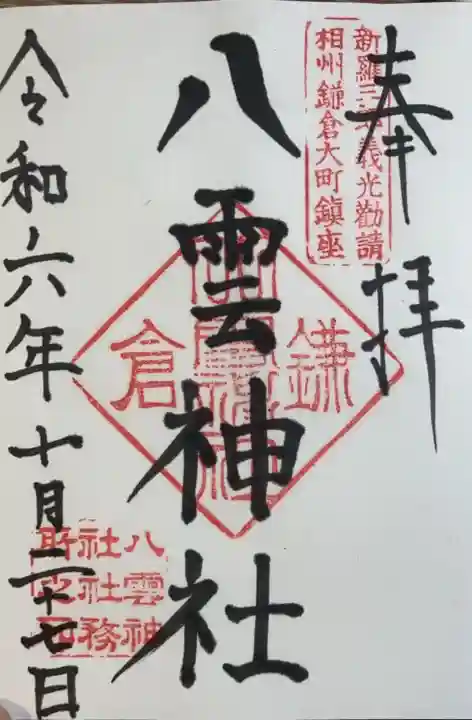 奉拝
新羅三郎義光勸請
相州鎌倉大町鎮座
八雲神社
鎌倉
八雲神
社社務
所之印
令和六年十月二十七日